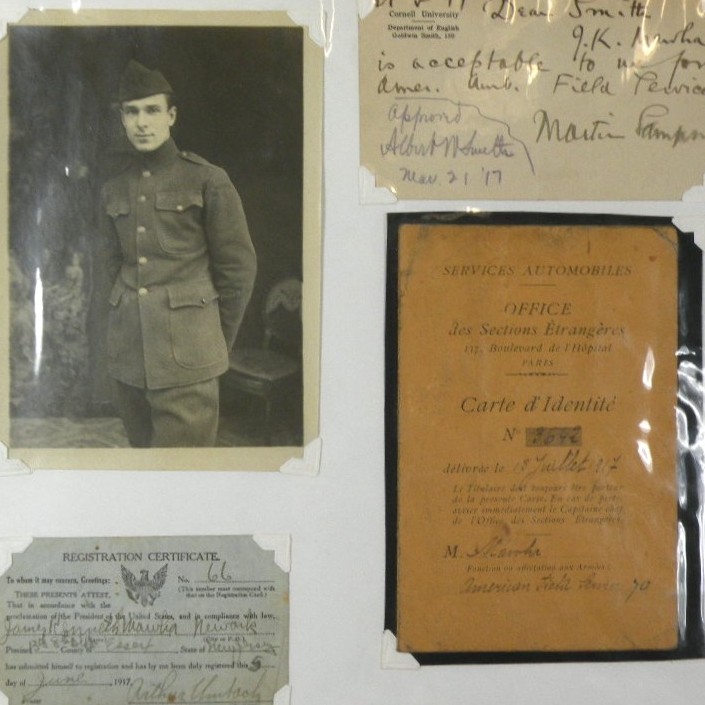 Cornell University
Department of English
Goldwin Smith, 159
Dear Smith
J.K.
is acceptable to me for
Amer. Amb. Field Service
Martin Sampson
approved
Albert W Smith
Mar. 21 '17
SERVICES AUTOMOBILES
OFFICE
des Sections Étrangères
Boulevard de l'Hôpital
PARIS
Carte d'Identité
N° 3642
délivrée le 13 Juillet 1917
Le Titulaire doit toujours être porteur
de la présente Carte. En cas de perte
avisez immédiatement le Capitaine chef
de l'Office des Sections Étrangères.
M.
Fonction ou affectation aux Armées:
American Field
REGISTRATION CERTIFICATE.
To whom it may concern, Greetings:
No. 66
(This number must correspond with
that on the Registration Card.)
THESE PRESENTS ATTEST,
That in accordance with the
proclamation of the President of the United States, and in compliance with law,
James Kenneth Newark
Precinct County of Essex, State of New Jersey
has submitted himself to registration and has by me been duly registered this 5
day of June, 1917.
Arthur